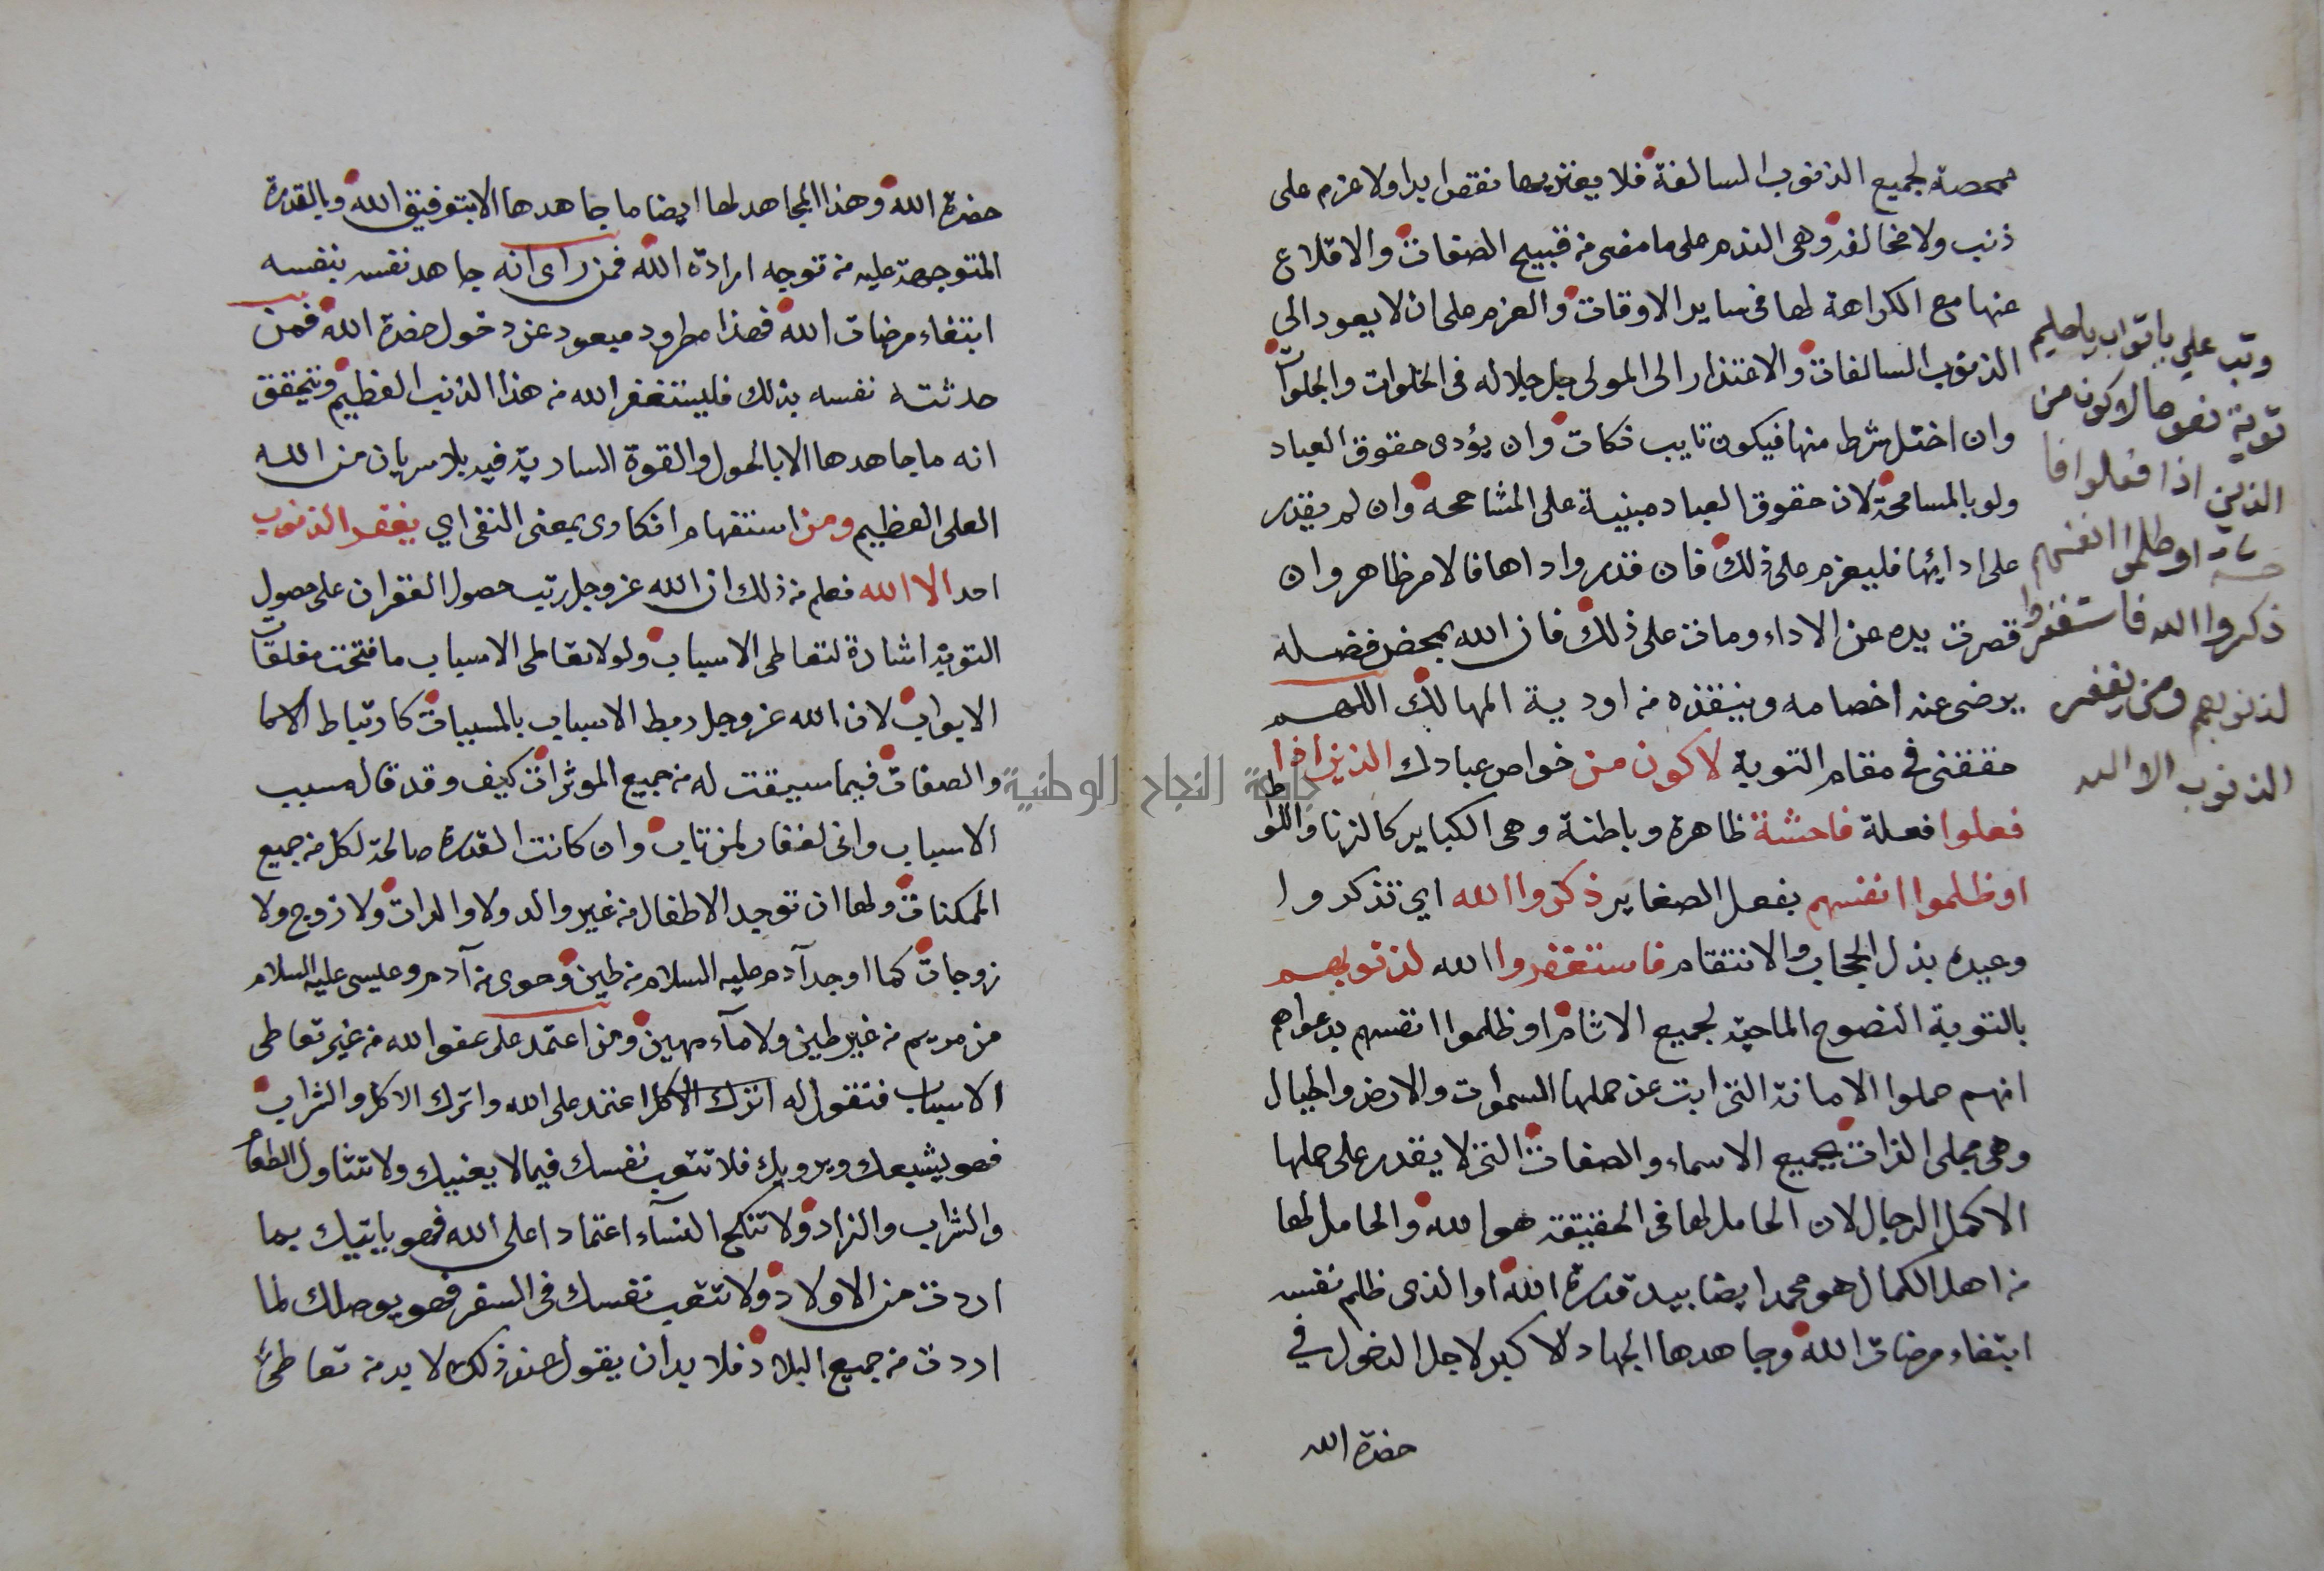 ممحصة لجميع الذنوب السالفة فلا يعتريها نقص ابدا ولا عزم على
ذنب ولا مخالفة وهي الندم على ما مضى من قبيح الصفات والاقلاع
عنها مع الكراهة لها في ساير الاوقات والعزم على ان لا يعود الى
الذنوب السالفات والاعتذار الى المولى جل جلاله في الخلوات والجلوات
وان اختل شرط منها فيكون تايب فكات وان يؤدى حقوق العباد
ولو بالمسامحة لان حقوق العباد مبنية على المشاححة وان لم يقدر
على ادايها فليعزم على ذلك فان قدر واداها فالامر ظاهر وان
قصرت يده عن الاداء ومات على ذلك فان الله بمحض فضله
يرضى عنه اخصامه وينقذه من اودية المهالك اللهم
حققني في مقام التوبة لاكون من خواص عبادك الذين اذا
فعلوا فعلة فاحشة ظاهرة وباطنة وهي الكباير كالزنا واللواط
او ظلموا انفسهم بفعل الصغاير ذكروا الله اي تذكروا
وعيده بذل الحجاب والانتقام فاستغفروا الله لذنوبهم
بالتوبة النصوح الماحية لجميع الاثام او ظلموا انفسهم بدعواهم
انهم حملوا الامانة التي ابت عن حملها السموات والارض والجبال
وهي مجلى الذات بجميع الاسماء والصفات التي لا يقدر على حملها
الا كمل الرجال لان الحامل لها في الحقيقة هو الله والحامل لها
من اهل الكمال هو محمد ايضا بيد قدرة الله او الذي ظلم نفسه
ابتغاء مرضات الله وجاهدها الجهاد الاكبر لاجل الدخول في
حضرة الله
وتب علي يا تواب يا حليم
توبة نصوحا لاكون من
الذين اذا فعلوا فا
حشة او ظلموا انفسهم
ذكروا الله فاستغفروا
لذنوبهم ومن يغفر
الذنوب الا الله
حضرة الله وهذا المجاهد لها ايضا ما جاهدها الا بتوفيق الله وبالقدرة
المتوجهة عليه من توجه ارادة الله فمن راى انه جاهد نفسه بنفسه
ابتغاء مرضات الله فهذا مطرود مبعود عن دخول حضرة الله فمن
حدثته نفسه بذلك فليستغفر الله من هذا الذنب العظيم ويتحقق
انه ما جاهدها الا بالحول والقوة السارية فيه بلا سريان من الله
العلي العظيم ومن استفهام انكاري بمعنى النفي اي يغفر الذنوب
احد الا الله فعلم من ذلك ان الله عز وجل رتب حصول الغفران على حصول
التوبة اشارة لتعاطي الاسباب ولولا تعاطي الاسباب ما فتحت مغلقات
الابواب لان الله عز وجل ربط الاسباب بالمسببات كارتباط الاسما
والصفات فيما سبقت له من جميع الموثرات كيف وقد قال مسبب
الاسباب واني لغفار لمن تاب وان كانت القدرة صالحة لكل من جميع
الممكنات ولها ان توجد الاطفال من غير والد ولا والدات ولا زوج ولا
زوجات كما اوجد آدم عليه السلام من طين وحوى من آدم وعيسى عليه السلام
من مريم من غير طين ولا مآء مهين ومن اعتمد على عفو الله من غير تعاطي
الاسباب فتقول له اترك الاكل اعتمد على الله واترك الاكل والشراب
فهو يشبعك ويرويك فلا تتعب نفسك فيما لا يعنيك ولا تتناول الطعام
والشراب والزاد ولا تنكح النسآء اعتمادا على الله فهو ياتيك بما
اردت من الاولاد ولا تتعب نفسك في السفر فهو يوصلك لما
اردت من جميع البلاد فلا بد ان يقول عند ذلك لا بد من تعاطي
جامعة النجاح الوطنية